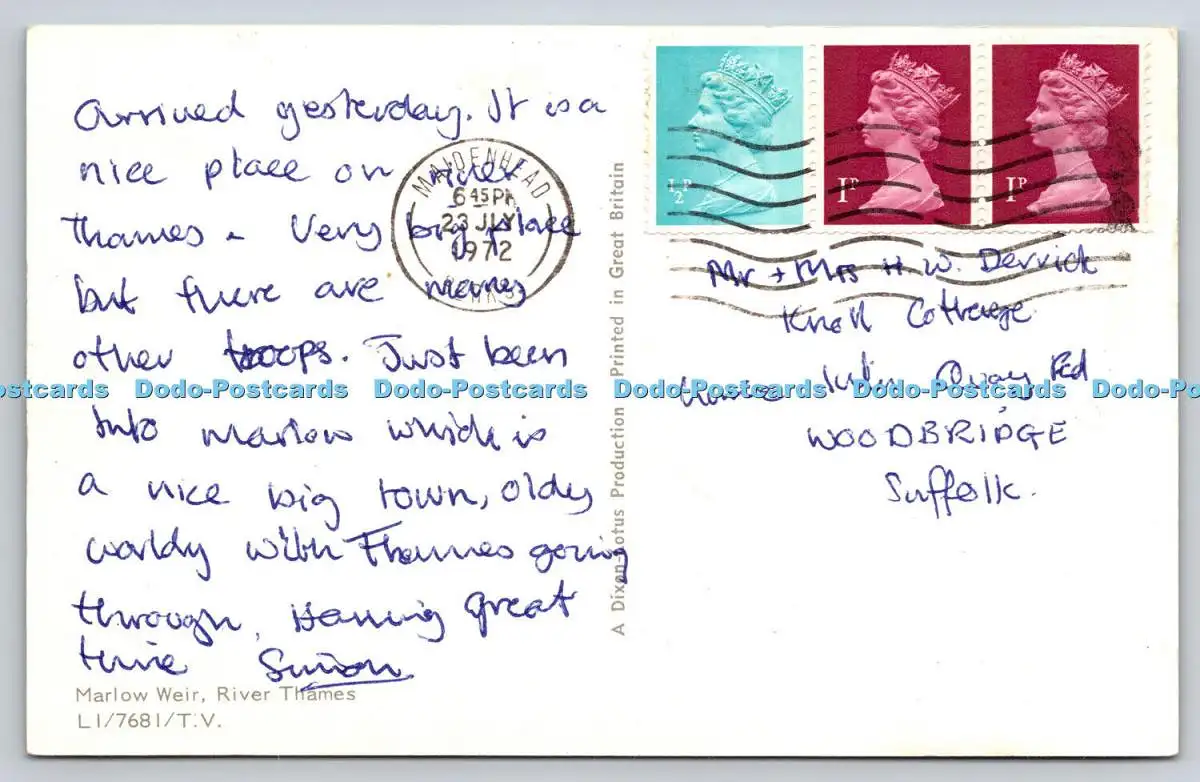 Arrived yesterday. It is a
nice place on river
Thames - Very big place
but there are many
other troops. Just been
into Marlow which is
a nice big town, oldy
worldy with Thames going
through. Having great
time Simon
Marlow Weir, River Thames
L1/7681/T.V.
A Dixon-Lotus Production Printed in Great Britain
MAIDENHEAD
6 45 PM
23 JLY
1972
½P
1P
1P
Mr + Mrs H. W. Derrick
Knoll Cottage
Quay Rd
WOODBRIDGE
Suffolk.
Dodo-Postcards Dodo-Postcards Dodo-Postcards Dodo-Postcards Dodo-Postcards